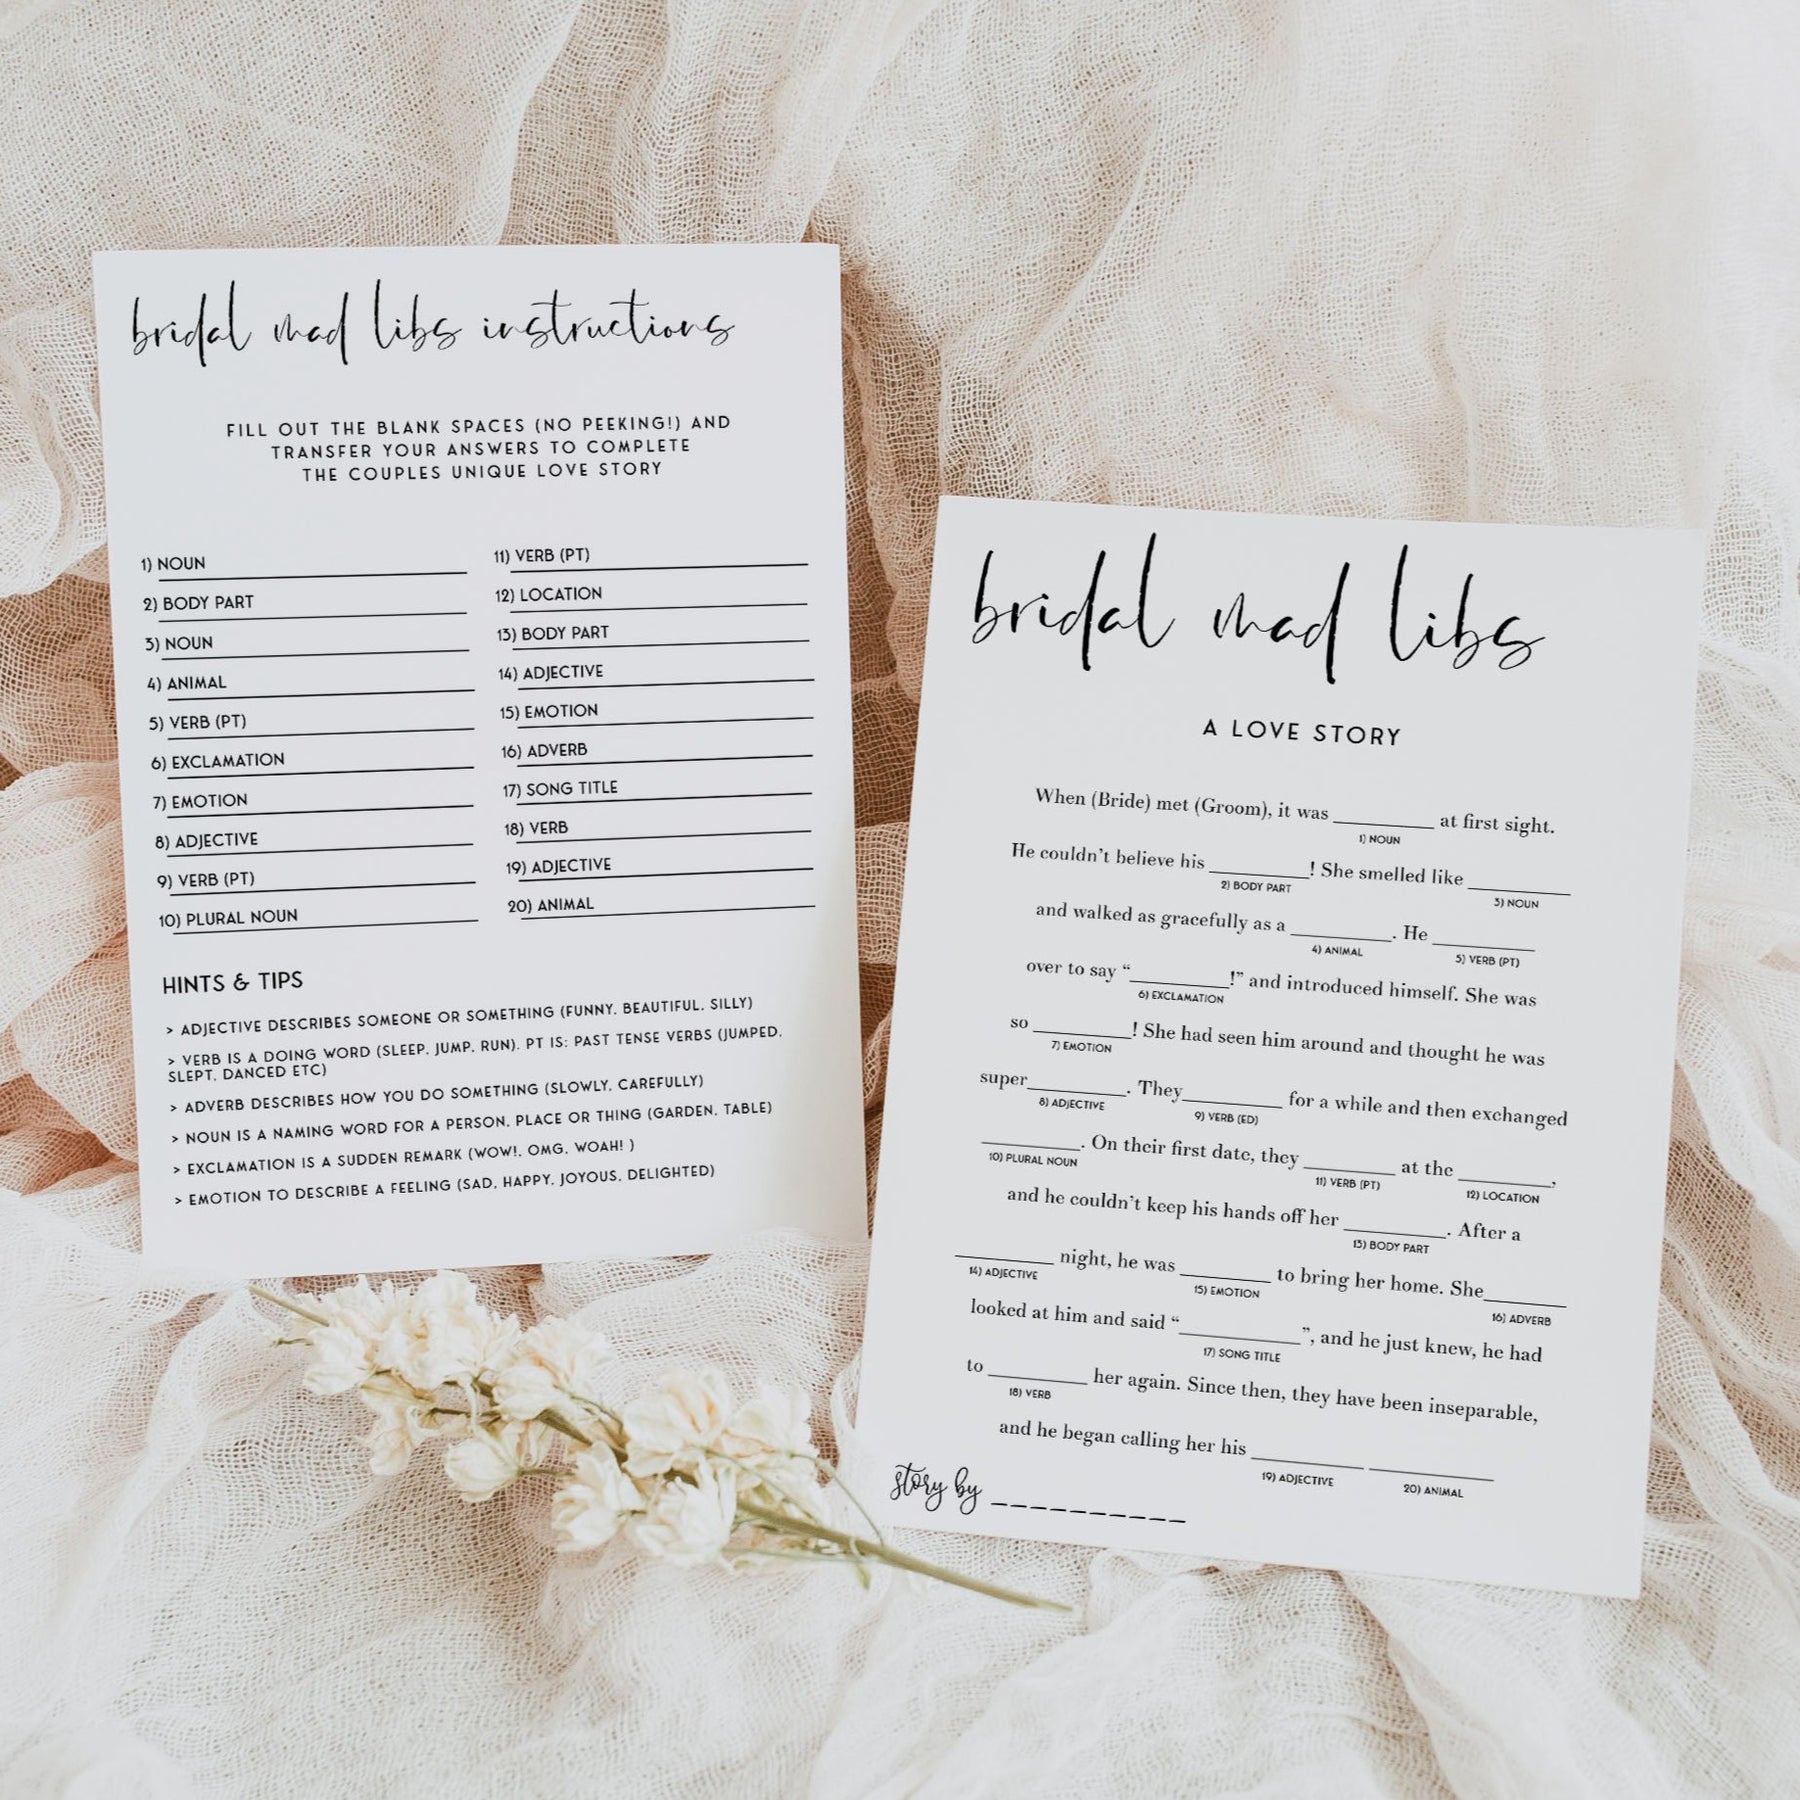 bridal mad libs instructions
FILL OUT THE BLANK SPACES (NO PEEKING!) AND
TRANSFER YOUR ANSWERS TO COMPLETE
THE COUPLES UNIQUE LOVE STORY
1) NOUN
2) BODY PART
3) NOUN
4) ANIMAL
5) VERB (PT)
6) EXCLAMATION
7) EMOTION
8) ADJECTIVE
9) VERB (PT)
10) PLURAL NOUN
11) VERB (PT)
12) LOCATION
13) BODY PART
14) ADJECTIVE
15) EMOTION
16) ADVERB
17) SONG TITLE
18) VERB
19) ADJECTIVE
20) ANIMAL
HINTS & TIPS
> ADJECTIVE DESCRIBES SOMEONE OR SOMETHING (FUNNY, BEAUTIFUL, SILLY)
> VERB IS A DOING WORD (SLEEP, JUMP, RUN). PT IS: PAST TENSE VERBS (JUMPED,
SLEPT, DANCED ETC)
> ADVERB DESCRIBES HOW YOU DO SOMETHING (SLOWLY, CAREFULLY)
> NOUN IS A NAMING WORD FOR A PERSON, PLACE OR THING (GARDEN, TABLE)
> EXCLAMATION IS A SUDDEN REMARK (WOW!, OMG, WOAH! )
> EMOTION TO DESCRIBE A FEELING (SAD, HAPPY, JOYOUS, DELIGHTED)
bridal mad libs
A LOVE STORY
When (Bride) met (Groom), it was __________ at first sight.
1) NOUN
He couldn't believe his __________! She smelled like __________
2) BODY PART 3) NOUN
and walked as gracefully as a __________. He __________
4) ANIMAL 5) VERB (PT)
over to say “__________!” and introduced himself. She was
6) EXCLAMATION
so __________! She had seen him around and thought he was
7) EMOTION
super__________. They__________ for a while and then exchanged
8) ADJECTIVE 9) VERB (ED)
__________. On their first date, they __________ at the __________,
10) PLURAL NOUN 11) VERB (PT) 12) LOCATION
and he couldn't keep his hands off her __________. After a
13) BODY PART
__________ night, he was __________ to bring her home. She__________
14) ADJECTIVE 15) EMOTION 16) ADVERB
looked at him and said “____________”, and he just knew, he had
17) SONG TITLE
to __________ her again. Since then, they have been inseparable,
18) VERB
and he began calling her his ___________ ____________
19) ADJECTIVE 20) ANIMAL
story by __________